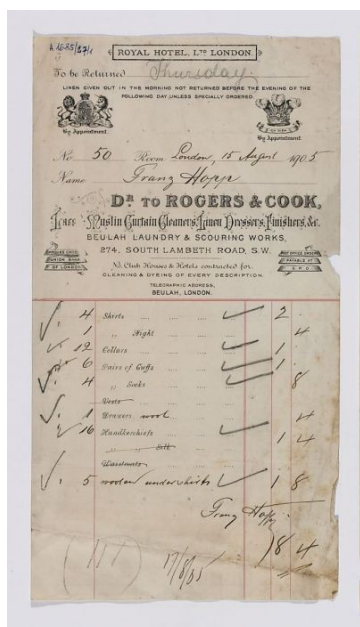 A 1685/37/1
ROYAL HOTEL, LTD LONDON.
To be Returned Thursday
LINEN GIVEN OUT IN THE MORNING NOT RETURNED BEFORE THE EVENING OF THE
FOLLOWING DAY UNLESS SPECIALLY ORDERED.
By Appointment. By Appointment.
No. 50 Room London, 15 August 1905
Name Franz Hopp
DR. TO ROGERS & COOK,
Lace & Muslin Curtain Cleaners, Linen Dressers, Finishers, &c.
BEULAH LAUNDRY & SCOURING WORKS,
274, SOUTH LAMBETH ROAD, S.W.
CHEQUES CROSSED
UNION BANK
OF LONDON
POST OFFICE ORDERS
PAYABLE AT
G.P.O
N.B. Club Houses & Hotels contracted for.
CLEANING & DYEING OF EVERY DESCRIPTION.
TELEGRAPHIC ADDRESS,
BEULAH, LONDON.
4 Shirts 2
1 " Night 4
12 Collars 1
6 Pairs of Cuffs 1
4 " Socks 8
Vests
1 Drawers wool 4
16 Handkerchiefs 1 4
" Silk
Waistcoats
5 woolen undershirts 1 8
Franz Hopp
8 4
17/8/05